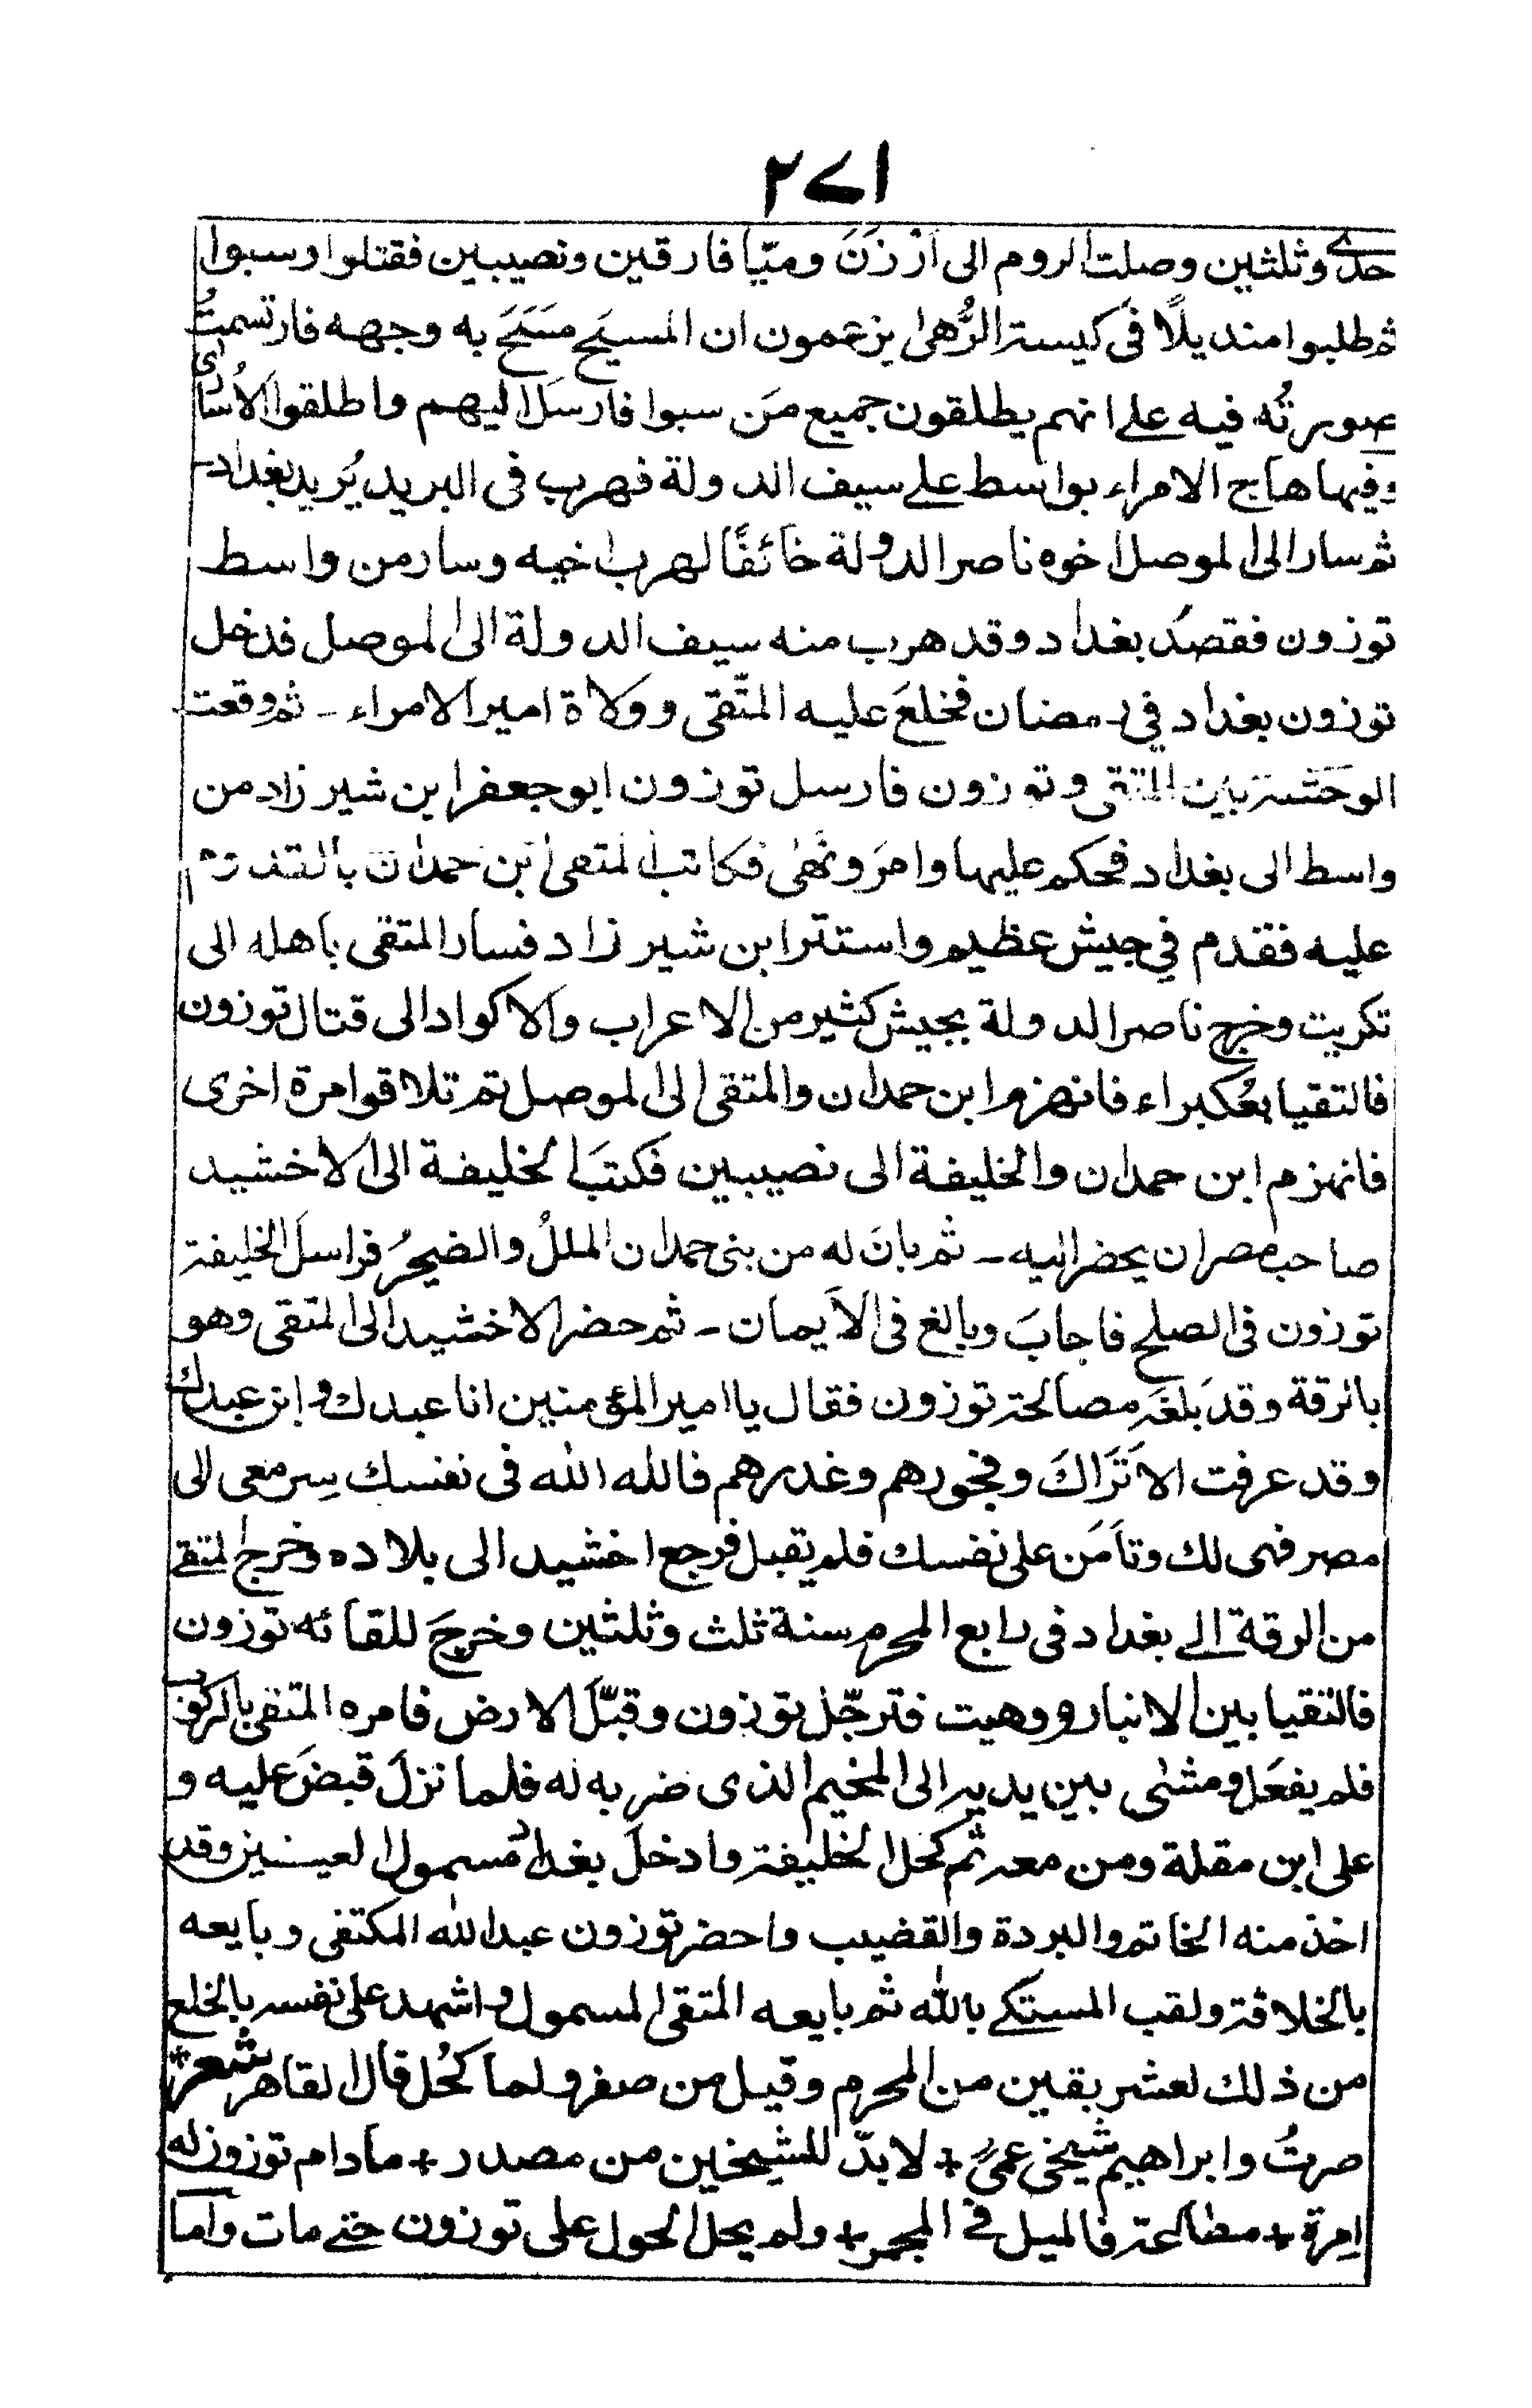 ٢٧١
حدى وثلثين وصلت الروم الى اَرْزَنَ وميّا فارقين ونصيبين فقتلوا وسبوا
ثم طلبوا منديلًا فى كيسة الرُّهى يزعمون ان المسيح مَسَحَ به وجهه فارتسمتُ
صورتُه فيه على انهم يطلقون جميع مَن سبوا فارسَل اليهم واطلقوا الاُسارى
وفيها هاج الامراء بواسط على سيف الدولة فهرب فى البريد يُريد بغداد
ثم سار الى الموصل اخوه ناصر الدولة خائفًا لهرب اخيه وسار من واسط
توزون فقصَد بغداد وقد هرب منه سيف الدولة الى الموصل فدخل
توزون بغداد فى رمضان فخلعَ عليه المتّقى وولاة امير الامراء ـ ثم وقعت
الوحَشة بين المتقى وتوزون فارسل توزون ابو جعفر ابن شير زاد من
واسط الى بغداد فحكم عليها وامَر ونَهٰى فكاتب المتقى ابن حمدان بالتقدم
عليه فقدم فى جيش عظيم واستتر ابن شير زاد فسار المتقى باهله الى
تكريت وخرج ناصر الدولة بجيش كثير من الاعراب والاكواد الى قتال توزون
فالتقيا بعُكبراء فانهزم ابن حمدان والمتقى الى الموصل ثم تلاقوا مرة اخرى
فانهزم ابن حمدان والخليفة الى نصيبين فكتبَ الخليفة الى الاخشيد
صاحب مصر ان يحضر اليه ـ ثم بانَ له من بنى حمدان المللُ والضيجرُ فراسلَ الخليفة
توزون فى الصلح فاجابَ وبالغ فى الاَيمان ـ ثم حضر الاخشيد الى المتقى وهو
بالرقة وقد بَلغَه مصالحة توزون فقال يا امير المؤمنين انا عبدك وابن عبدك
وقد عرفت الاَترَاكَ وفجورهم وغدرهم فالله الله فى نفسك سِر معى الى
مصر فهى لك وتأمَن على نفسك فلم يقبل فرجع اخشيد الى بلاده وخرج المتقى
من الرقة الى بغداد فى رابع المحرم سنة ثلث وثلثين وخرجَ للقائه توزون
فالتقيا بين الانبار وهيت فترجّل توزون وقبّلَ الارض فامره المتقى بالركوب
فلم يفعَل ومشى بين يديه الى المخيم الذى ضربه له فلما نزلَ قبضَ عليه و
على ابن مقلة ومن معه ثم كُحل الخليفة وادخلَ بغداد مسمول العينين وقد
اخذ منه الخاتم والبردة والقضيب واحضر توزون عبد الله المكتفى وبايعه
بالخلافة ولقب المستكى بالله ثم بايعه المتقى المسمول واشهد على نفسه بالخلع
من ذلك لعشر بقين من المحرم وقيل من صفر ولما كُحُل قال القاهر شعر+
صرتُ وابراهيم شيخى عمىً + لا بدّ للشيخين من مصدر + ما دام توزون له
اِمرة + مطاعة فالميل فى المجمر + ولم يحل الحول على توزون حتى مات واما